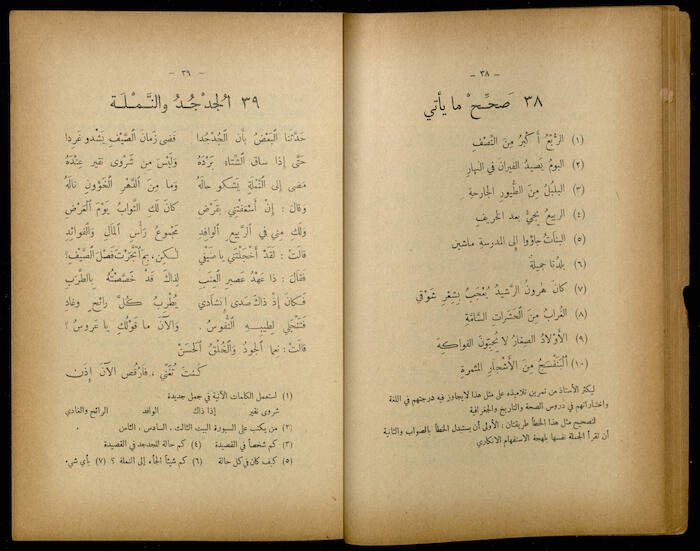 - ٣٨ -
٣٨ صَحِّحْ ما يأتي
(١) الرُّبْعُ أَكْبَرُ مِنَ النِّصْفِ
(٢) البومُ يَصيدُ الفيرانَ في النهارِ
(٣) البلبلُ مِنَ الطُّيورِ الجارحةِ
(٤) الربيعُ يجيُّ بعد الخريفِ
(٥) البناتُ جاؤوا إلى المدرسةِ ماشين
(٦) بلدُنا جميلةٌ
(٧) كانَ هٰرونُ الرَّشيدُ يُعْجَبُ بِشِعْرِ شَوْقي
(٨) الغُرابُ مِنَ الحَشَراتِ السَّامَّةِ
(٩) الأَوْلادُ الصِّغارُ لا يُحِبّونَ الفواكِهَ
(١٠) اَلْبَنَفْسَجُ مِنَ الأَشْجارِ المُثمرةِ
ليكثر الأستاذ من تمرين تلاميذه على مثل هذا لايجاوز فيه درجتهم في اللغة
واختباراتهم في دروس الصحة والتاريخ والجغرافية
لتصحيح مثل هذا الخطأ طريقتان : الأولى أن يستبدل الخطأ بالصواب والثانية
أن تقرأ الجملة نفسها بلهجة الاستفهام الانكاري
- ٣٩ -
٣٩ اَلجُدْجُدُ والنَّمْلَة
حَدَّثَنا البَعْضُ بأن الجُدْجُدا قضى زمانَ الصَّيْفِ يَشْدو غَرِدا
حَتَّى إذا ساقَ الشِّتاءُ بَرْدَهُ وَلَيْسَ مِن شَرْوى نقير عِنْدَهُ
مَضى إلى النَّمْلَةِ يَشكو حالَهُ وَما مِنَ الدَّهْرِ الخَؤونِ نالَهُ
وقالَ : إنْ أَسْعَفْتِني بِقَرْضِ كانَ لكِ الثَّوابُ يَوْمَ العَرْضِ
وَلكِ مِني في الرَّبيعِ الوافِدِ مَجْموعُ رَأْسِ المالِ وَالفَوائِدِ
قالتْ : لَقَدْ أَخْجَلْتَني يا ضَيْفي لٰكِن، بِمَ اَتَّجَرْتَ فَصْلَ الصَّيْفِ!
فَقالَ : ذا عَهْدُ عَصيرِ العِنَبِ لِذاكَ قَدْ خَصَّصْتُهُ بِالطَّرَبِ
فَكانَ إذْ ذاكَ صَدى إنْشادي يُطْرِبُ كُلَّ رائِحٍ وغادِ
فَتَنْجَلي لِطِيبِهِ النُّفوسُ . وَالآنَ ما قَوْلُكِ يا عَروسُ ؟
قالتْ : نِعما الجودُ وَالخُلْقُ الحَسَنْ
كُنتَ تُغَنّي ، فارْقُصِ الآنَ إِذَنْ
(١) استعمل الكلمات الآتية في جمل جديدة
شروى نقير إذا ذاك الوافد الرائح والغادي
(٢) من يكتب على السبورة البيت الثالث . السادس . الثامن .
(٣) كم شخصاً في القصيدة (٤) كم حالة للجدجد في القصيدة
(٥) كيف كان في كل حالة (٦) كم شيئاً ألجأه إلى النملة ؟ (٧) بأي شيء.